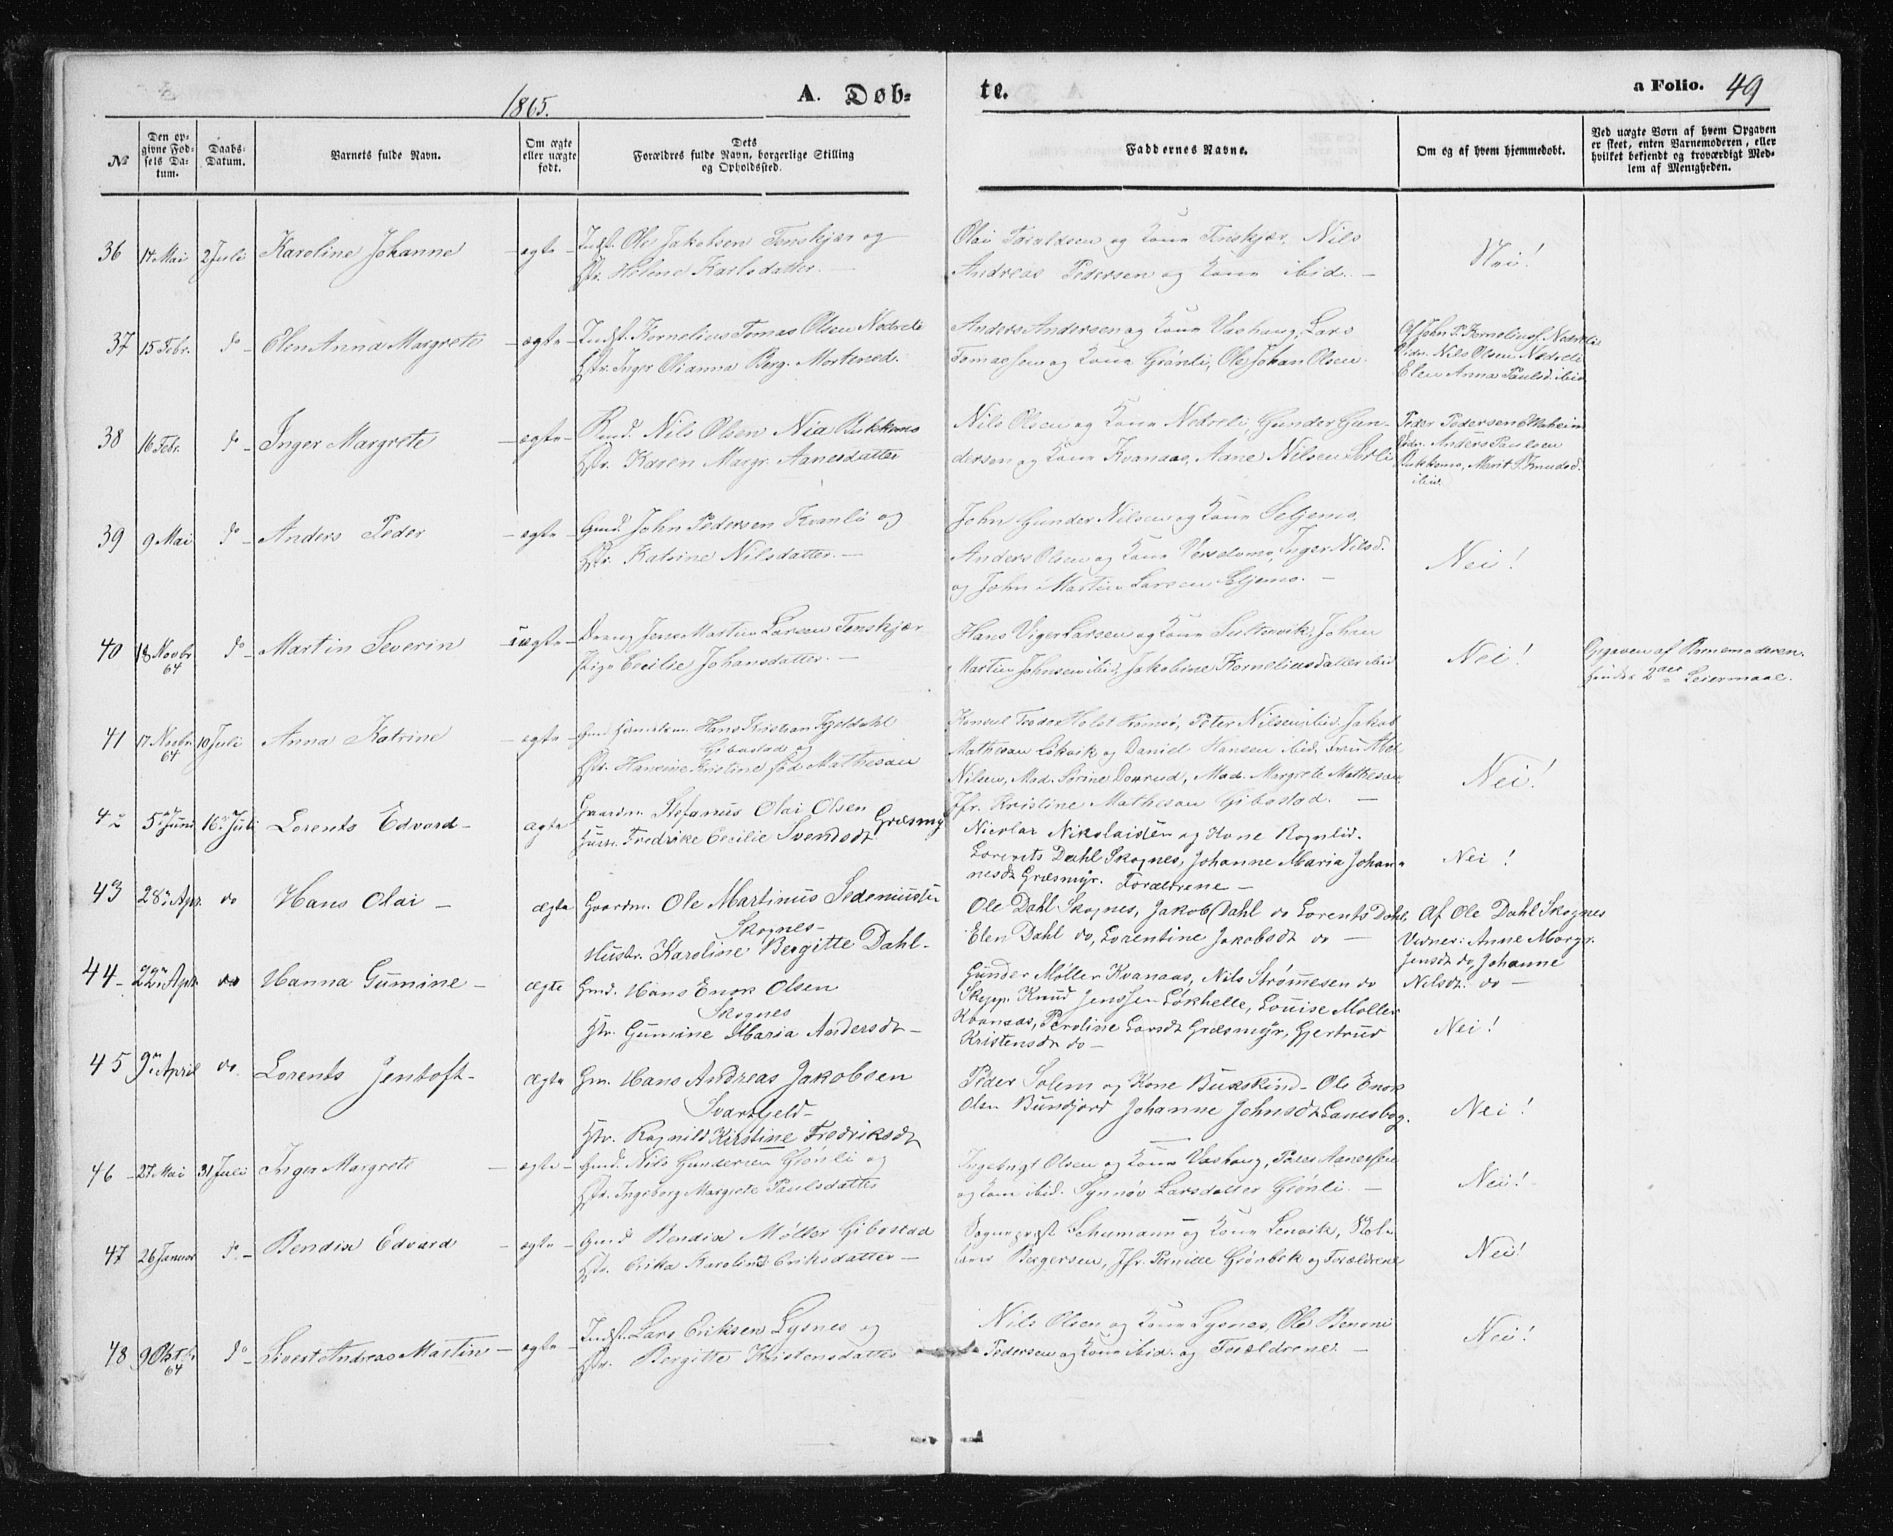 1865.
A. Døb-
te.
a Folio. 49
№
Den opgivne Fødsels Datum.
Daabs-Datum.
Barnets fulde Navn.
Om ægte eller uægte født.
Dets Forældres fulde Navn, borgerlige Stilling og Opholdssted.
Faddernes Navne.
Om og af hvem hjemmedøbt.
Ved uægte Børn af hvem Opgaven er skeet, enten Barnemoderen, eller hvilket bekjendt og troværdigt Medlem af Menigheden.
36 14 Mai 2 Juli Karoline Johanne – ægte – Indst. Ole Jakobsen Finskjær og
Hstr. Helene Karlsdatter. –
Olai Toraldsen og Kone Finskjær, Nils
Andreas Pedersen og Kone ibid. –
Nei!
37 15 Febr. do – Elen Anna Margrete – ægte – Indst. Kornelius Tomas Olsen Nedreli
Hstr. Inger Olianna Berg. Mortensd.
Anders Andersen og Kone Vashaug, Lars
Tomassen og Kone Grønli, Ole Johan Olsen.
Af John P. Korneliuss. Nedreli
Vidn. Nils Olsen Nedreli
Elen Anna Paulsd. ibid
38 16 Febr. do – Inger Margrete – ægte – Nils Olsen Nia Bukkemo
Hstr. Karen Margr. Aanesdatter
Nils Olsen og Kone Nedreli, Gunder Gun-
dersen og Kone Kvanaas, Aane Nilsen Sørli
Peder Pedersen
Vidn. Anders Paulsen
Bukkemo, Marit P. Knudsd.
ibid.
39 9 Mai do – Anders Peder – ægte – Gmd. John Pedersen Kvanli og
Hstr. Katrine Nilsdatter. –
John Gunder Nilsen og Kone Seljemo,
Anders Olsen og Kone Inger Nilsd.
og John Martin Larsen Seljemo. –
Nei!
40 18 Novbr 64 do – Martin Severin uægte – Dreng Jens Martin Larsen Finskjær
Pige Cecilie Johansdatter. –
Hans Viger Larsen og Kone Sultenvik, Johan
Martin Johnsen ibid, Jakobine Korneliusdatter ibid
Nei!
Opgaven af Barnemoderen.
hendes 2det Leiermaal.
41 17 Novbr 64 10 Juli Anna Katrine – ægte – Hans Kristian Fjeldahl
Gibostad og
Hstr. Hansine Kristine fød Mathesen
Konsul Holst Tromsø, Peter Nilsen ibid, Jakob
Mathesen Løkvik og Daniel Hansen ibid. Fru
Nilsen, Mad. Sørine Mad. Margrete Mathesen
Jfr. Kristine Mathesen Gibostad. –
Nei!
42 5te Juni 16de Juli Lorents Edvard – ægte Gaardm. Stefanus Olai Olsen
Græsmyr
Hustr. Fredrike Cecilie Svendsdt
Nicolai Nikolaisen og Kone Rognlid.
Lorents Dahl Skognes, Johanne Maria Johan-
nesdt Græsmyr. Forældrene –
Nei!
43 28de Apr. do Hans Olai – ægte Gaardm. Ole Martinus Sedeniussen
Skognes –
Hustr. Karoline Bergitte Dahl –
Ole Dahl Skognes, Jakob Dahl do Lorents Dahl,
Elen Dahl do, Lorentine Jakobsdt do –
Af Ole Dahl Skognes
Vidner: Anne Margr.
Jensdt do, Johanne
Nilsdt do –
44 – 22de Apr. do Hanna Gumine – ægte Gmd. Hans Enok Olsen
Skognes
Hstr. Gumine Maria Andersdt –
Gunder Møller Kvanaas, Nils Strømesen do
Skipp. Knud Jenssen Løkhelle, Louise Møller
Kvanaas, Peroline Larsdt Græsmyr, Gjertrud
Kristensdt do –
Nei!
45 9de April do. Lorents Jentoft – ægte Gm. Hans Andreas Jakobsen
Svartfjeld –
Hstr. Ragnild Kirstine Fredriksdt
Peder Solem og Kone Buxskind – Ole Enok
Olsen Bundjord Johanne Johnsdt Lanesbog.
Nei!
46 – 27 Mai 31 Juli Inger Margrete – ægte – Gmd. Nils Gundersen Grønli og
Hstr. Ingeborg Margrete Paulsdatter
Ingebrigt Olsen og Kone Vashaug, Peder Aanessen
og Kone ibid. Synnøv Larsdatter Grønli. –
Nei!
47 26 Januar do – Bendix Edvard – ægte – Gmd Bendix Møller Gibostad
Hstr. Erika Karoline Eriksdatter –
Sogneprest Schumann og Kone Lenvik,
Bergersen, Jfr. Pernille Grønbek og Forældrene
Nei!
48 9 Oktbr 64 do – Sivert Andreas Martin – ægte – Indst. Lars Eriksen Lysnes og
Hstr. Bergitte Kristensdatter
Nils Olsen og Kone Lysnes, Ole Benoni
Pedersen og Kone ibid. og Forældrene. –
Nei!